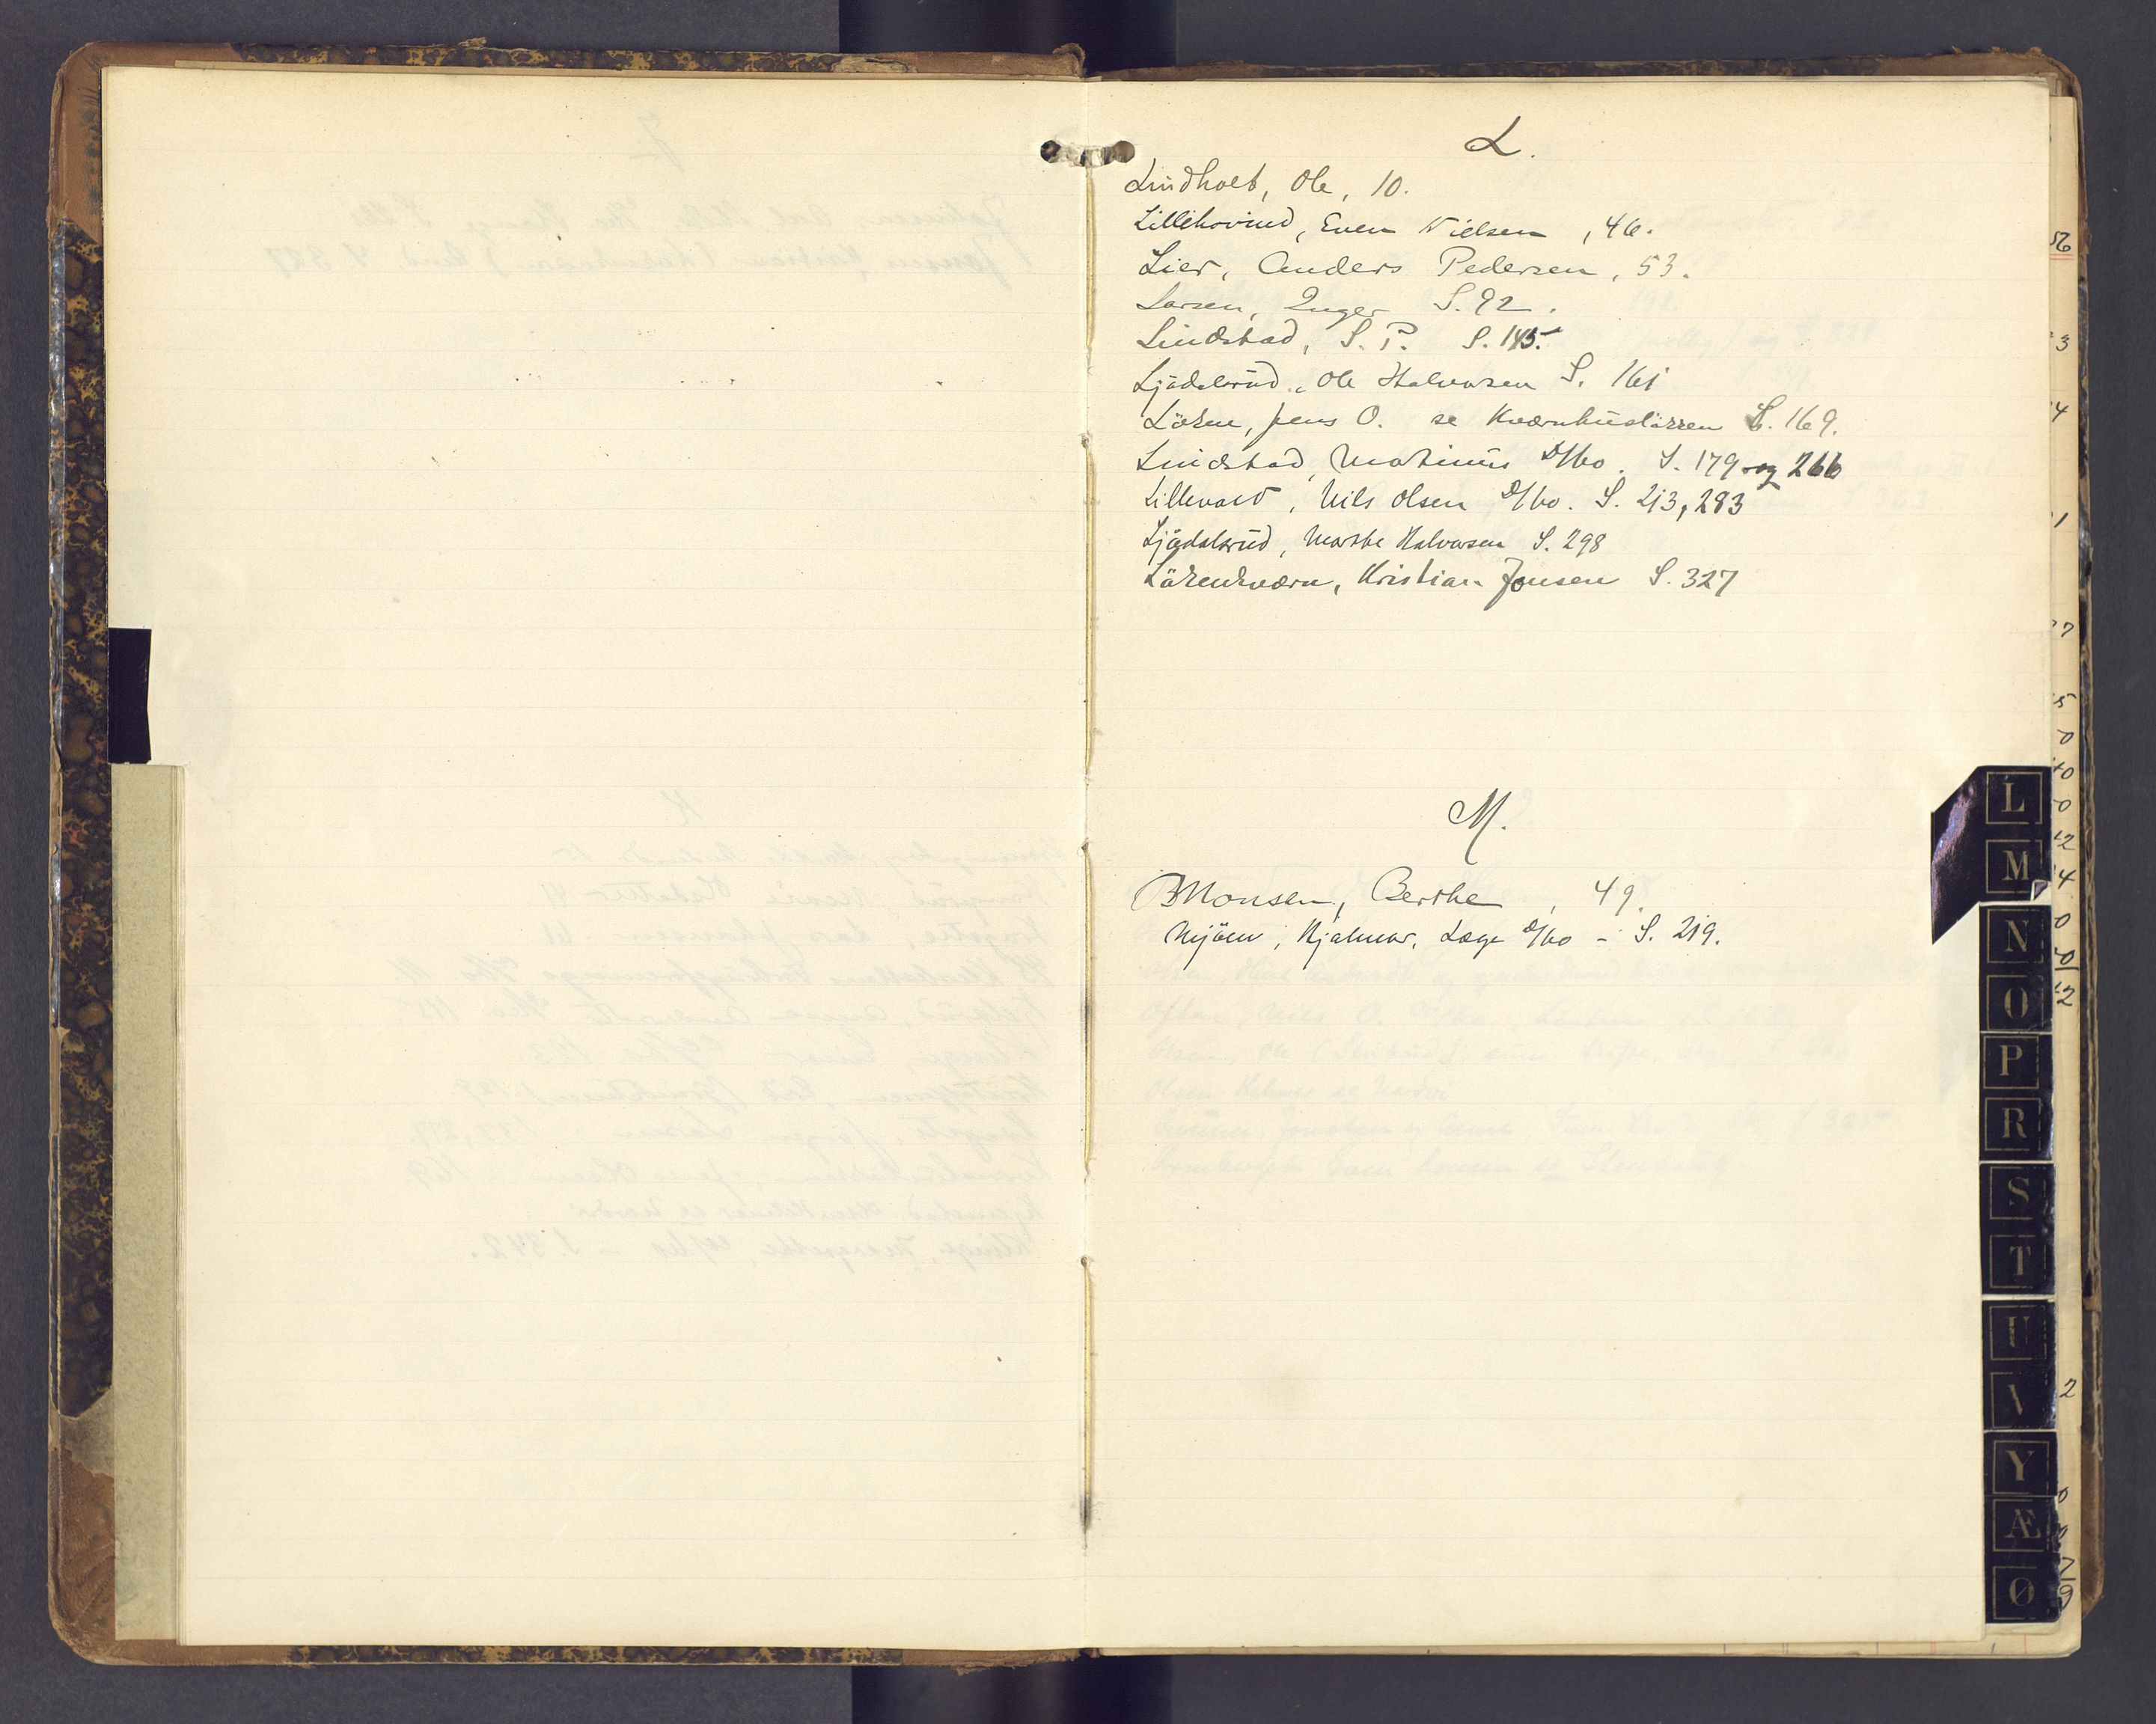 L.
Lindholt, Ole, 10.
Lillehovind, Even Nielsen, 46.
Lier, Anders Pedersen, 53.
Larsen, Inger S. 92.
Lindstad, S. P. S. 145.
Ljödalsrud, Ole Halvorsen S. 161
Löken, Jens O. se Kværnhusløkken S. 169.
Lindstad, Matinus D/bo. S. 179 og 266
Lillevold, Nils Olsen D/bo. S. 213, 283
Ljödalsrud, Marthe Halvorsen S. 298
Lökenkværn, Kristian Jonsen S. 327
M.
Monsen, Berthe, 49.
Mjöen, Hjalmar, Læge D/bo - S. 219.
L
M
N
O
P
R
S
T
U
V
Y
Æ
Ø